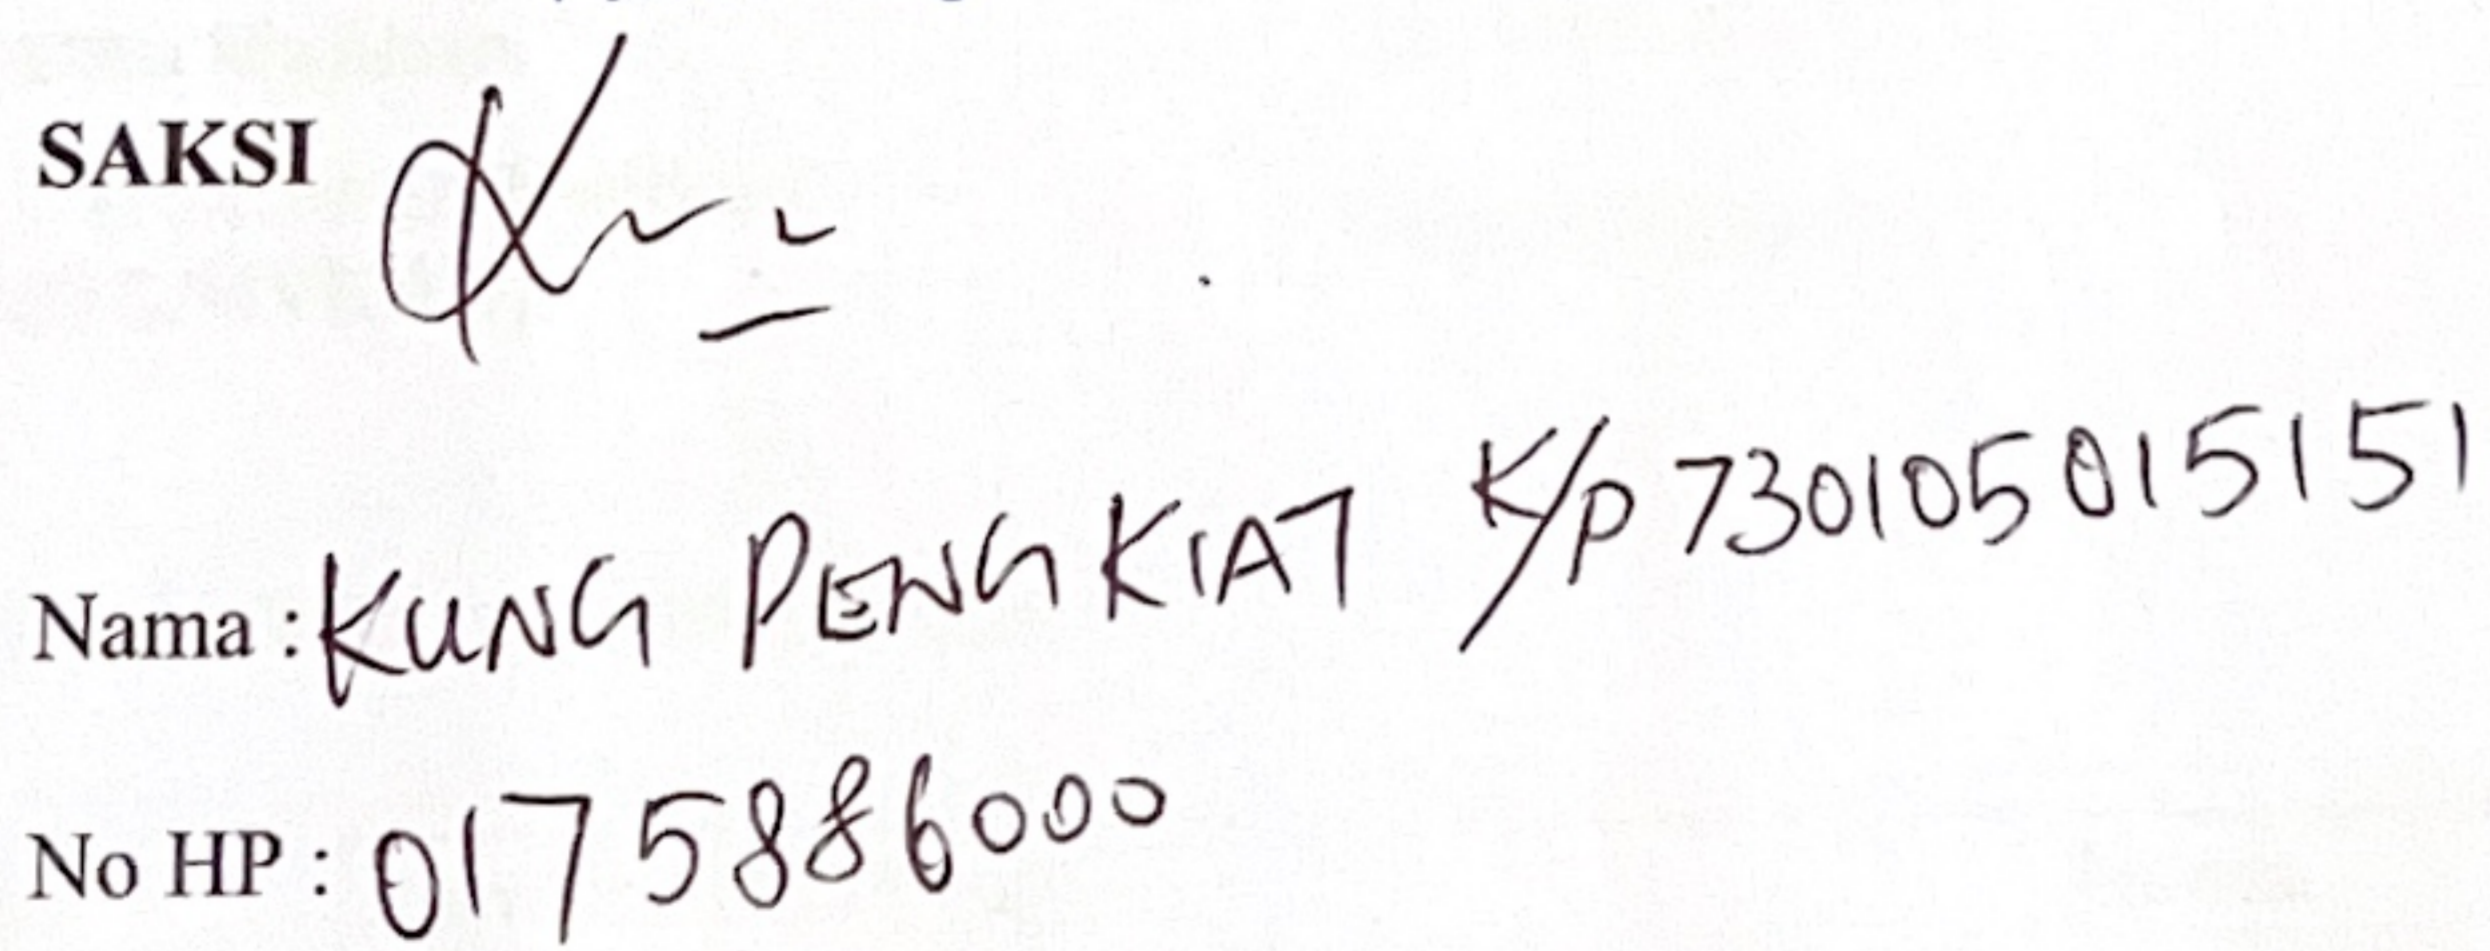 SAKSI
Nama : KUNG PENG KIAT K/P 730105015151
No HP : 0175886000